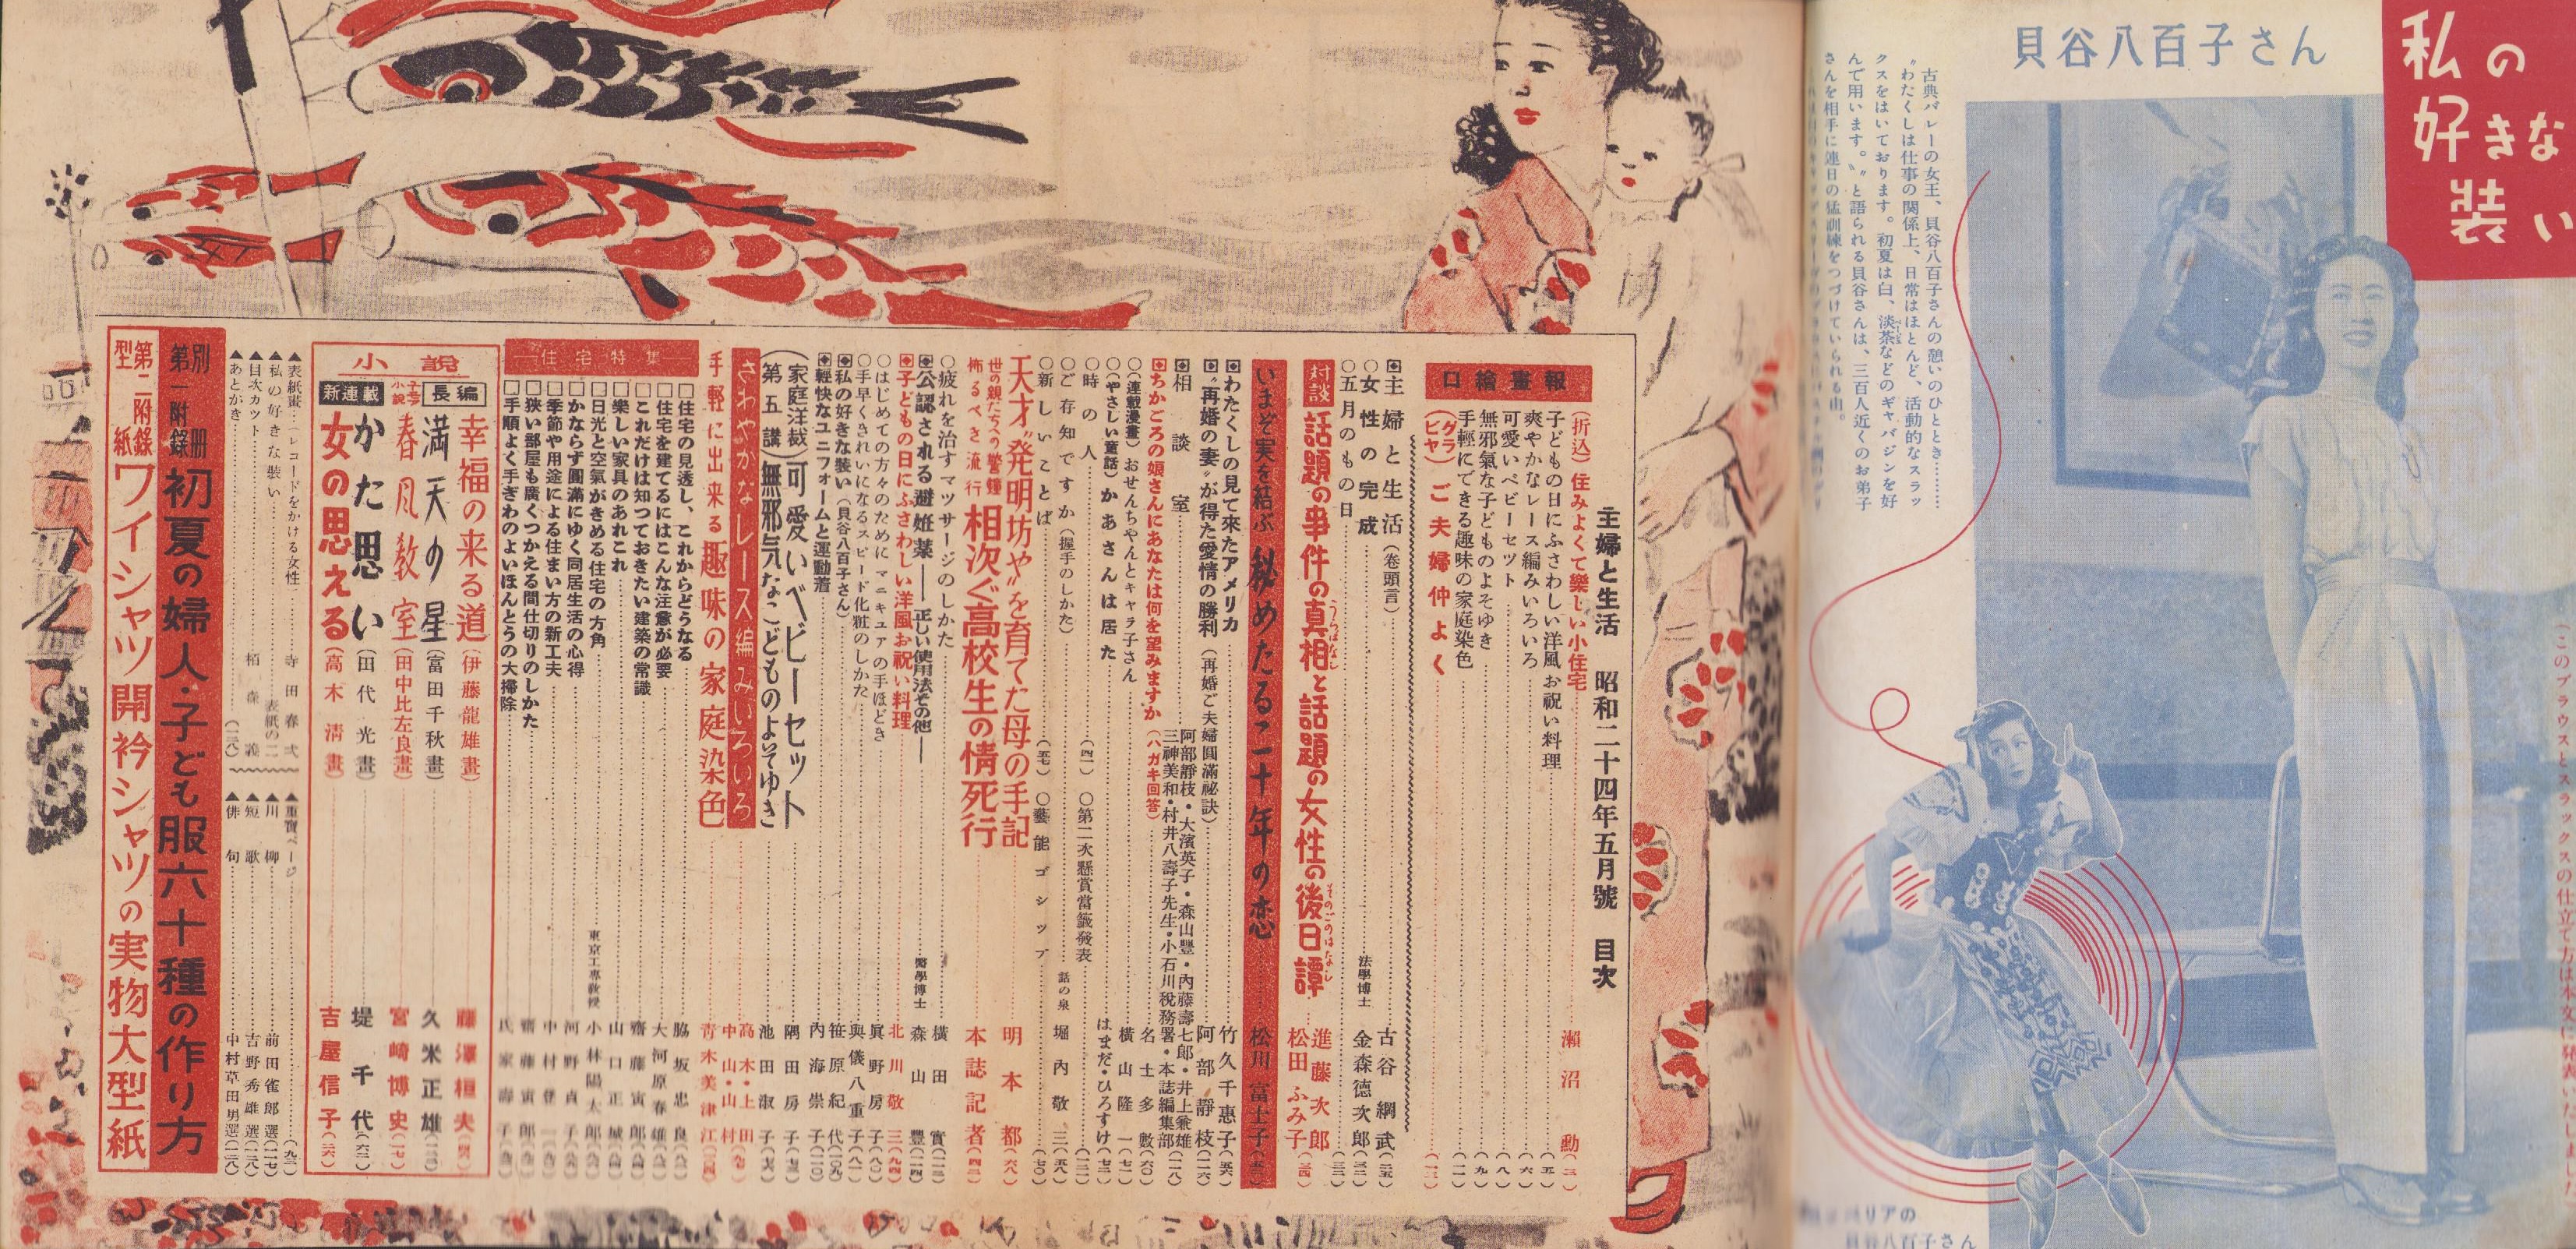 私の
好きな
装い
貝谷八百子さん
古典バレーの女王、貝谷八百子さんの憩いのひととき………
〝わたくしは仕事の関係上、日常はほとんど、活動的なスラッ
クスをはいております。初夏は白、淡茶などのギャバジンを好
んで用います。〟と語られる貝谷さんは、三百人近くのお弟子
さんを相手に連日の猛訓練をつづけていられる由。
(このブラウスとスラックスの仕立て方は本文に発表いたしました
リアの
貝谷八百子さん
主婦と生活 昭和二十四年五月號 目次
口繪畫報
(折込)住みよくて樂しい小住宅 瀬沼勳
子どもの日にふさわしい洋風お祝い料理
爽やかなレース編みいろいろ
可愛いベビーセット
無邪氣な子どものよそゆき
手輕にできる趣味の家庭染色
(グラビヤ)ご夫婦仲よく
主婦と生活(巻頭言) 古谷綱武
女性の完成 法學博士 金森德次郎
五月のもの日
対談 話題の事件の真相と話題の女性の後日譚 進藤次郎 松田ふみ子
いまぞ実を結ぶ 秘めたる二十年の恋 松川富士子
わたくしの見て來たアメリカ 竹久千惠子
〝再婚の妻〟が得た愛情の勝利(再婚ご夫婦圓滿祕訣) 阿部靜枝
相談室 阿部靜枝・大濱英子・森山豐・內藤壽七郎・井上兼雄
三神美和・村井八壽子先生・小石川稅務署・本誌編集部
ちかごろの娘さんにあなたは何を望みますか(ハガキ回答) 名士多數
(連載漫畫)おせんちゃんとキャラ子さん 橫山隆一
(やさしい童話)かあさんは居た はまだ・ひろすけ
時の人
第二次懸賞當籤發表
ご存知ですか(握手のしかた) 話の泉 堀內敬三
新しいことば
藝能ゴシップ
天才〝発明坊や〟を育てた母の手記 明本都
世の親たちへの警鐘 怖るべき流行 相次ぐ高校生の情死行 本誌記者
疲れを治すマッサージのしかた 橫田實
公認される避妊薬―正しい使用法その他― 醫學博士 森山豐
子どもの日にふさわしい洋風お祝い料理 北川敬三
はじめての方々のためにマニキュアの手ほどき 眞野房子
手早くきれいになるスピード化粧のしかた 與儀八重子
私の好きな裝い(貝谷八百子さん) 笹原紀代
輕快なユニフォームと運動着 內海崇子
(家庭洋裁第五講)可愛いベビーセット 隅田房子
無邪気なこどものよそゆき 池田淑子
さわやかなレース編みいろいろ 高木・上田 中山・山村
手軽に出来る趣味の家庭染色 青木美津江
住宅特集
住宅の見透し、これからどうなる 脇坂忠良
住宅を建てるにはこんな注意が必要 大河原春雄
これだけは知っておきたい建築の常識 齋藤寅郎
樂しい家具のあれこれ 山口正城
日光と空氣がきめる住宅の方角 東京工專敎授 小林陽太郎
かならず圓滿にゆく同居生活の心得 河野貞子
季節や用途による住まい方の新工夫 中村登一
狹い部屋も廣くつかえる間仕切りのしかた 齋藤寅郎
手順よく手ぎわのよいほんとうの大掃除 氏家壽子
小說
長編 幸福の来る道(伊藤龍雄畫) 藤澤桓夫
満天の星(富田千秋畫) 久米正雄
春凡教室(田中比左良畫) 宮崎博史
新連載 かた思い(田代光畫) 堤千代
女の思える(高木淸畫) 吉屋信子
▲表紙畫…(レコードをかける女性 寺田春弌
▲私の好きな裝い 表紙の二
▲目次カット 栢森義
▲あとがき (一二八)
▲重寶ページ
▲川柳 前田雀郎選
▲短歌 吉野秀雄選
▲俳句 中村草田男選
別冊第一附錄 初夏の婦人・子ども服六十種の作り方
第二附錄型紙 ワイシャツ開衿シャツの実物大型紙